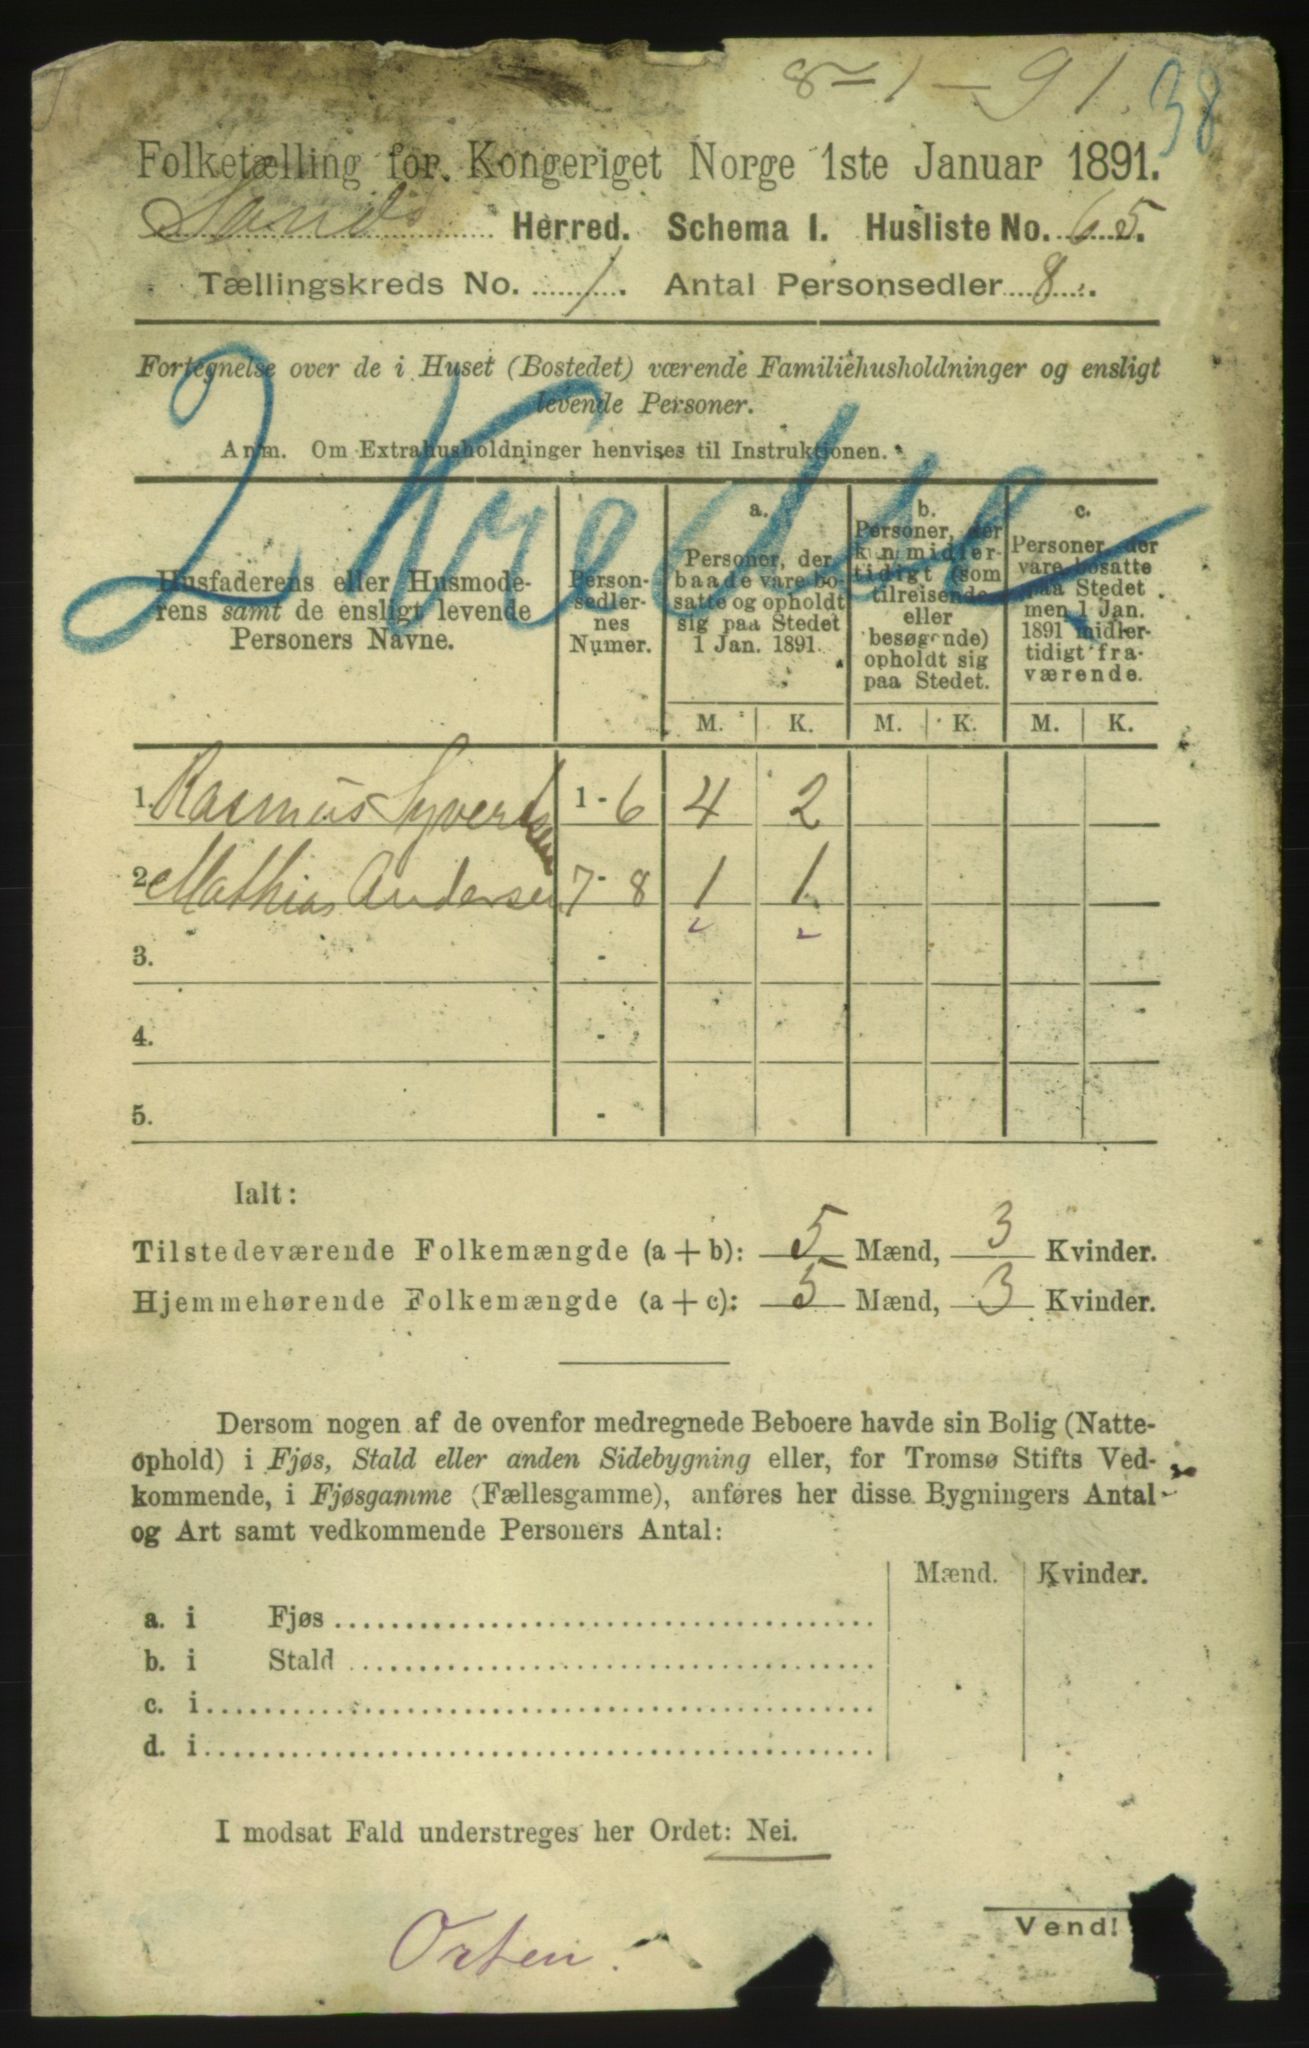 8-1-91. 38
Folketælling for Kongeriget Norge 1ste Januar 1891.
Sands Herred. Schema I. Husliste No. 65.
Tællingskreds No. 1. Antal Personsedler 8.
Fortegnelse over de i Huset (Bostedet) værende Familiehusholdninger og ensligt
levende Personer.
Anm. Om Extrahusholdninger henvises til Instruktionen.
2 Kredse
Husfaderens eller Husmode-
rens samt de ensligt levende
Personers Navne.
Person-
sedler-
nes
Numer.
a.
Personer, der
baade vare bo-
satte og opholdt
sig paa Stedet
1 Jan. 1891.
b.
Personer, der
kun midler-
tidigt (som
tilreisende
eller
besøgende)
opholdt sig
paa Stedet.
c.
Personer, der
vare bosatte
paa Stedet
men 1 Jan.
1891 midler-
tidigt fra-
værende.
M. K. M. K. M. K.
1. Rasmus Syvertsen 1 - 6 4 2
2. Mathias Andersen 7 - 8 1 1
3. -
4. -
5. -
Ialt:
Tilstedeværende Folkemængde (a + b): 5 Mænd, 3 Kvinder.
Hjemmehørende Folkemængde (a + c): 5 Mænd, 3 Kvinder.
Dersom nogen af de ovenfor medregnede Beboere havde sin Bolig (Natte-
ophold) i Fjøs, Stald eller anden Sidebygning eller, for Tromsø Stifts Ved-
kommende, i Fjøsgamme (Fællesgamme), anføres her disse Bygningers Antal
og Art samt vedkommende Personers Antal:
Mænd. Kvinder.
a. i Fjøs
b. i Stald
c. i
d. i
I modsat Fald understreges her Ordet: Nei.
Vend!
Orten.